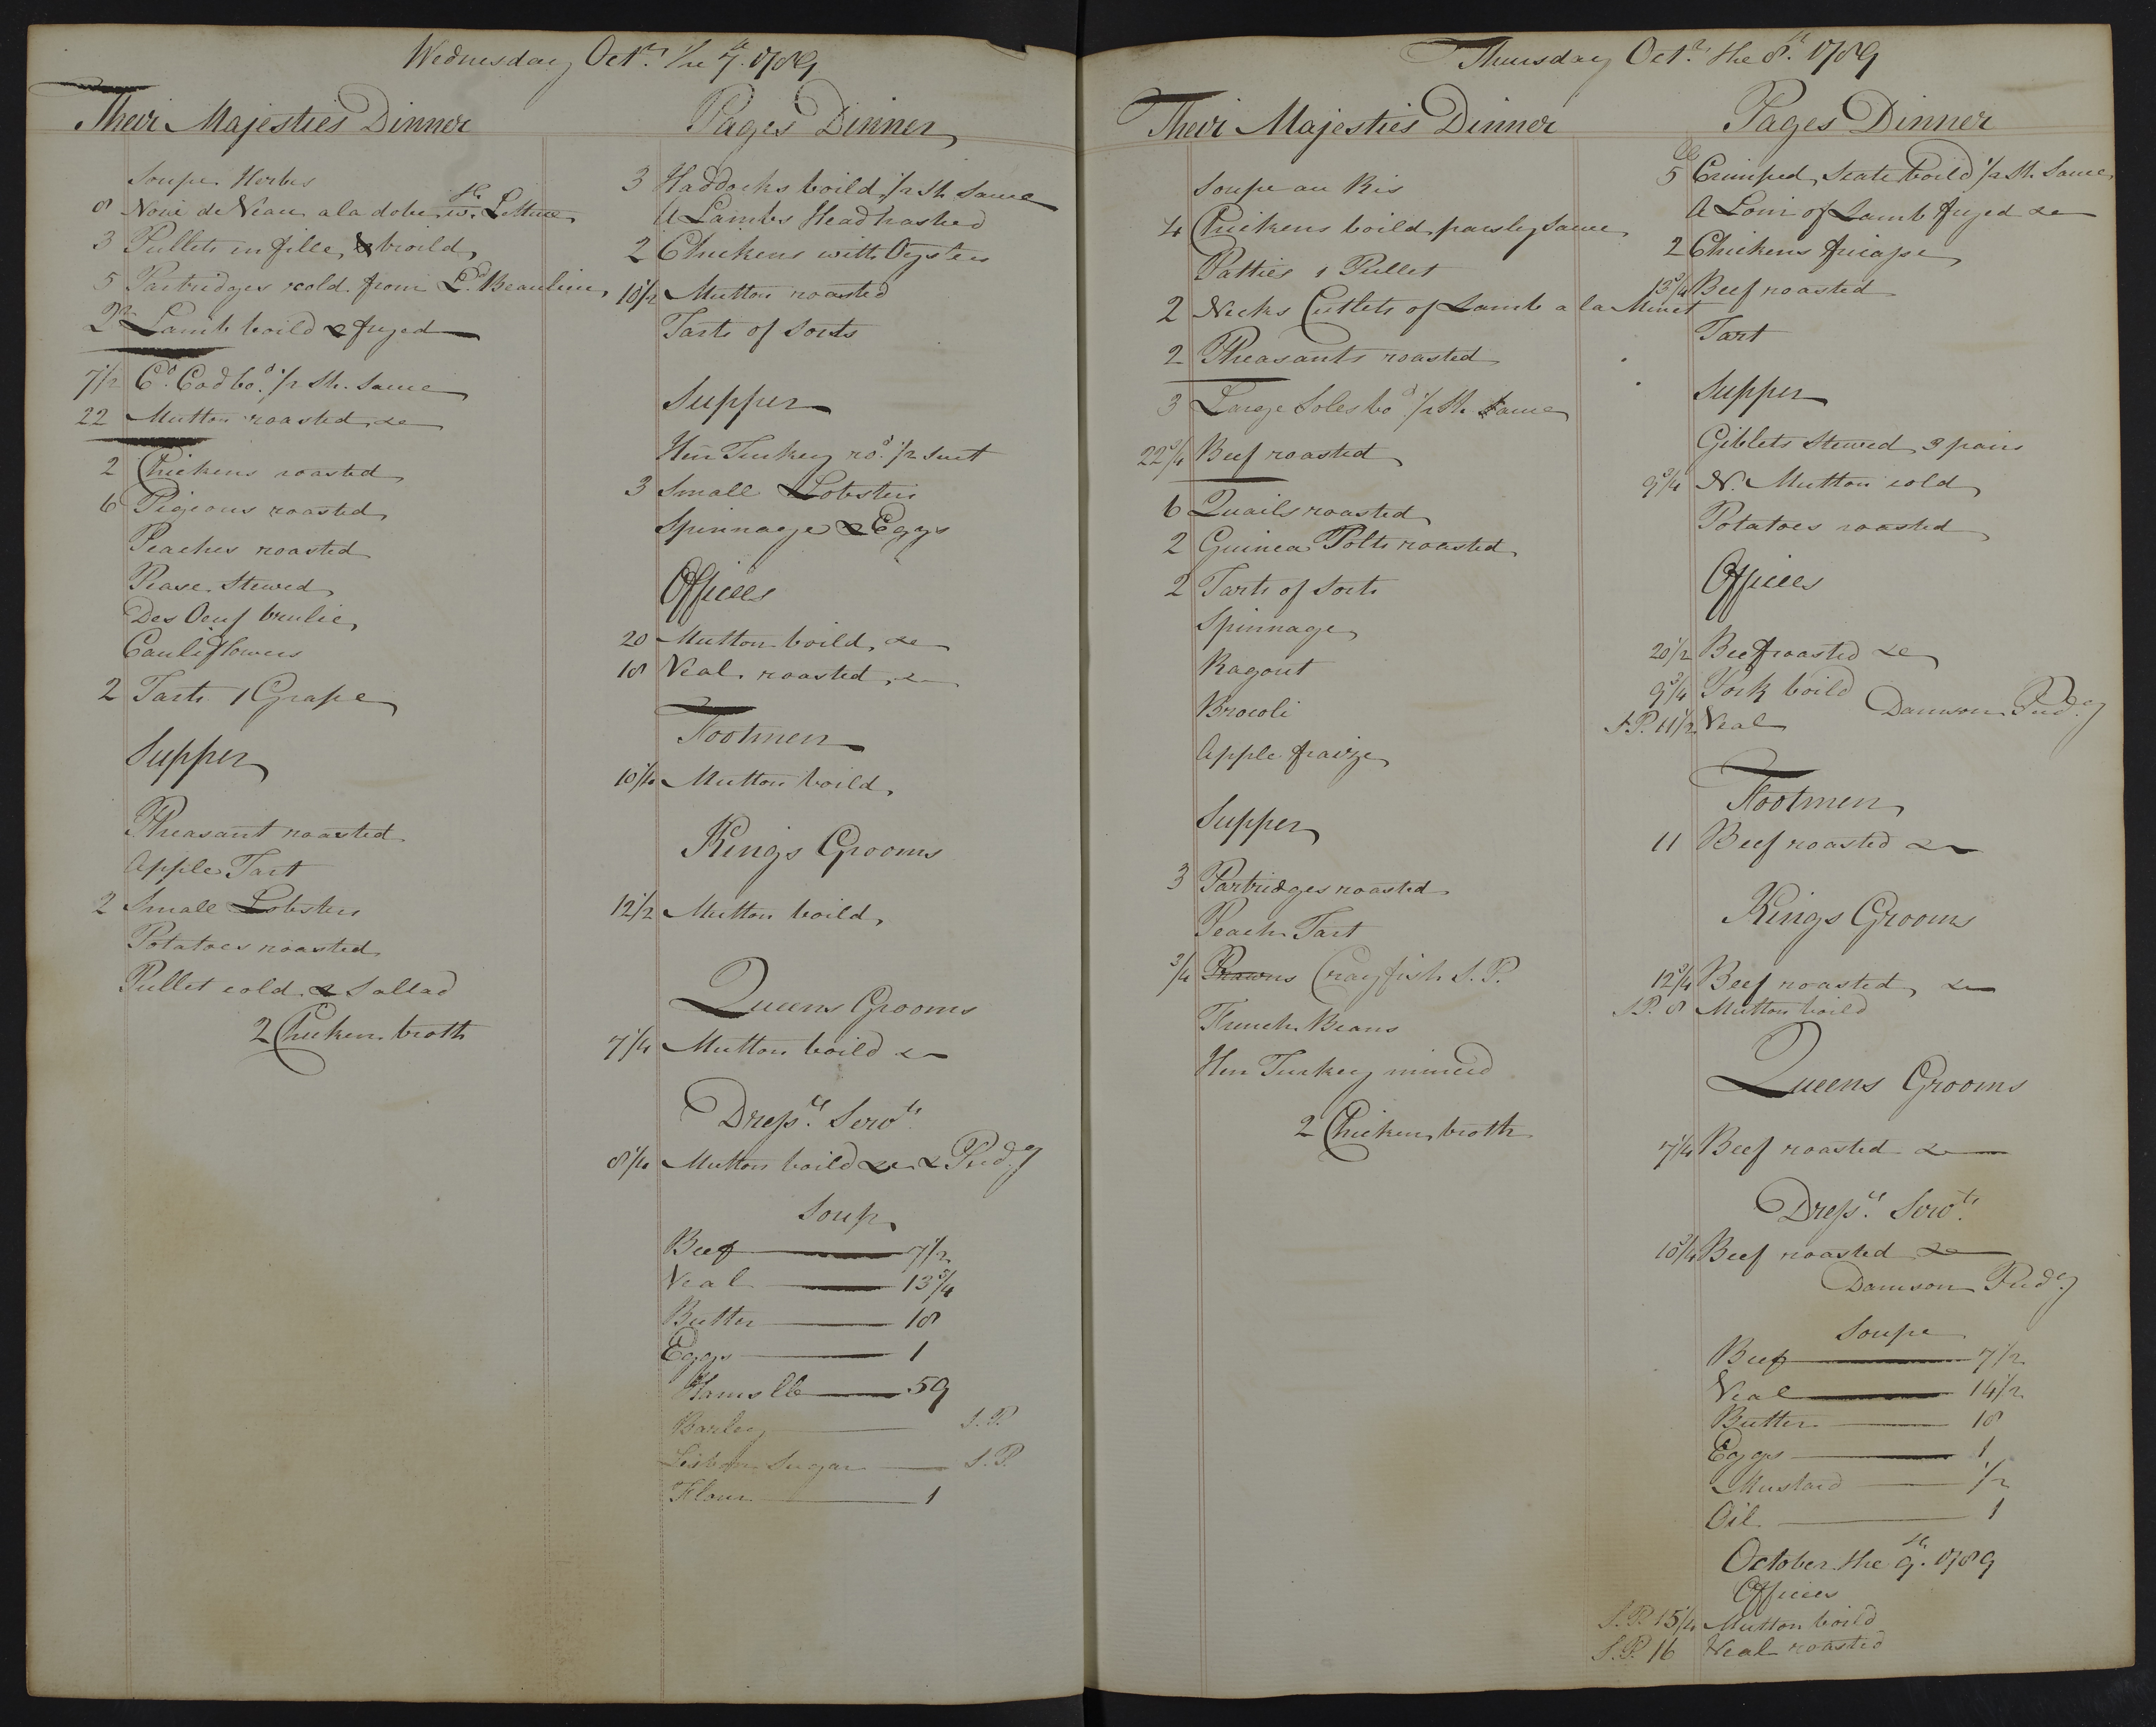 Wednesday Octr. the 7th. 1789
Their Majesties Dinner
Soupe Herbes
8 Noix de Veau a la dobe, w. Lettuce
3 Pullets in fille, & broild
5 Partridges cold from Ld. Beaulieu
2 qrs Lamb boild & fryed
7 1/2 Cd. Cod bod. 1/2 St. Sauce
22 Mutton roasted, &c
2 Chickens roasted
6 Pigeons roasted
Peaches roasted
Pease Stewed
Des Oeuf brulie
Cauliflowers
2 Tarts 1 Grape
Supper
Pheasant roasted
Apple Tart
2 Small Lobsters
Potatoes roasted
Pullet cold & Sallad
2 Chicken broth
Pages Dinner
3 Haddocks boild 1/2 St. Sauce
A Lambs Head hashed
2 Chickens with Oysters
10 1/2 Mutton roasted
Tarts of Sorts
Supper
Hen Turkey rod. 1/2 suet
3 Small Lobsters
Spinnage & Eggs
Offices
20 Mutton boild, &c
18 Veal roasted, &c
Footmen
10 1/4 Mutton boild,
Kings Grooms
12 1/2 Mutton boild,
Queens Grooms
7 1/4 Mutton boild &c
Dresrs. Servts.
8 1/4 Mutton boild &c & Pudg
Soup
Beef 7 1/2
Veal 13 3/4
Butter 18
Eggs 1
Hams lb 59
Barley S.P.
Lisbon Sugar S.P.
Flour 1
Thursday Octr. the 8th. 1789
Their Majesties Dinner
Soupe au Ris
4 Chickens boild, parsley Sauce
Patties 1 Pullet
2 Necks Cutlets of Lamb a la Minut
2 Pheasants roasted
3 Large Soles bod. 1/2 St. Sauce
22 3/4 Beef roasted
6 Quails roasted
2 Guinea Polts roasted
2 Tarts of Sorts
Spinnage
Ragout
Brocoli
Apple fraize
Supper
3 Partridges roasted
Peach Tart
3/4 Prawns Crayfish S.P.
French Beans
Hen Turkey minced
2 Chicken broth
Pages Dinner
lb
5 Crimped, Scate boild 1/2 St. Sauce
A Loin of Lamb fryed &c
2 Chickens fricasse
13 3/4 Beef roasted
Tart
Supper
Giblets Stewed 3 pairs
9 3/4 N. Mutton cold
Potatoes roasted
Offices
20 1/2 Beef roasted &c
9 3/4 Pork boild
Damson Pudg
S.P. 11 1/2 Veal
Footmen
11 Beef roasted &c
Kings Grooms
12 3/4 Beef roasted, &c
S.P. 8 Mutton boild
Queens Grooms
7 1/4 Beef roasted &c
Dresrs. Servts.
10 3/4 Beef roasted &c
Damson Pudg
Soupe
Beef 7 1/2
Veal 14 1/2
Butter 18
Eggs 1
Mustard 1/2
Oil 1
October the 9th. 1789
Offices
S.P. 15 1/4 Mutton boild
S.P. 16 Veal roasted